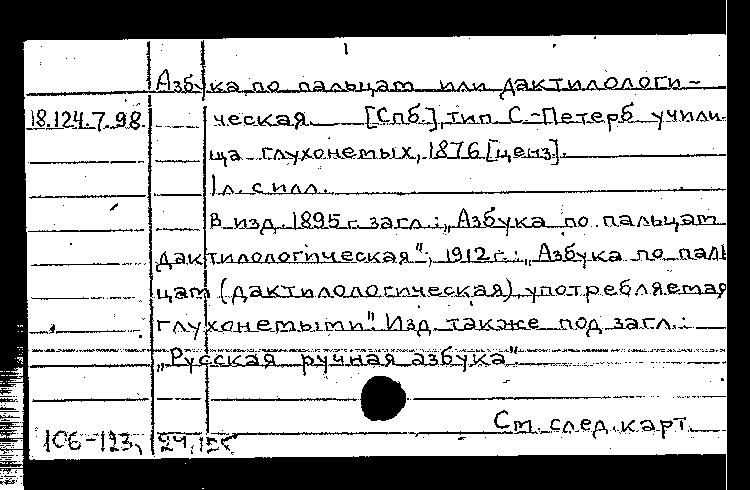 Азбука по пальцам или дактилологи-
18.124.7.98 ческая. [Спб.], тип. С.-Петерб. учили
ща глухонемых, 1876 [ценз].
1 л. с илл.
В изд. 1895 г. загл.: „Азбука по пальцам
дактилологическая"; 1912 г.: „Азбука по паль
цам (дактилологическая), употребляемая
глухонемыми". Изд. также под загл.:
„Русская ручная азбука"
См. след. карт.
106-123,